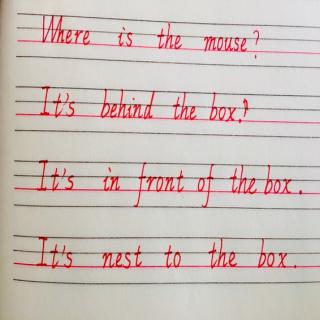 Where is the mouse?
It's behind the box.
It's in front of the box.
It's nest to the box.